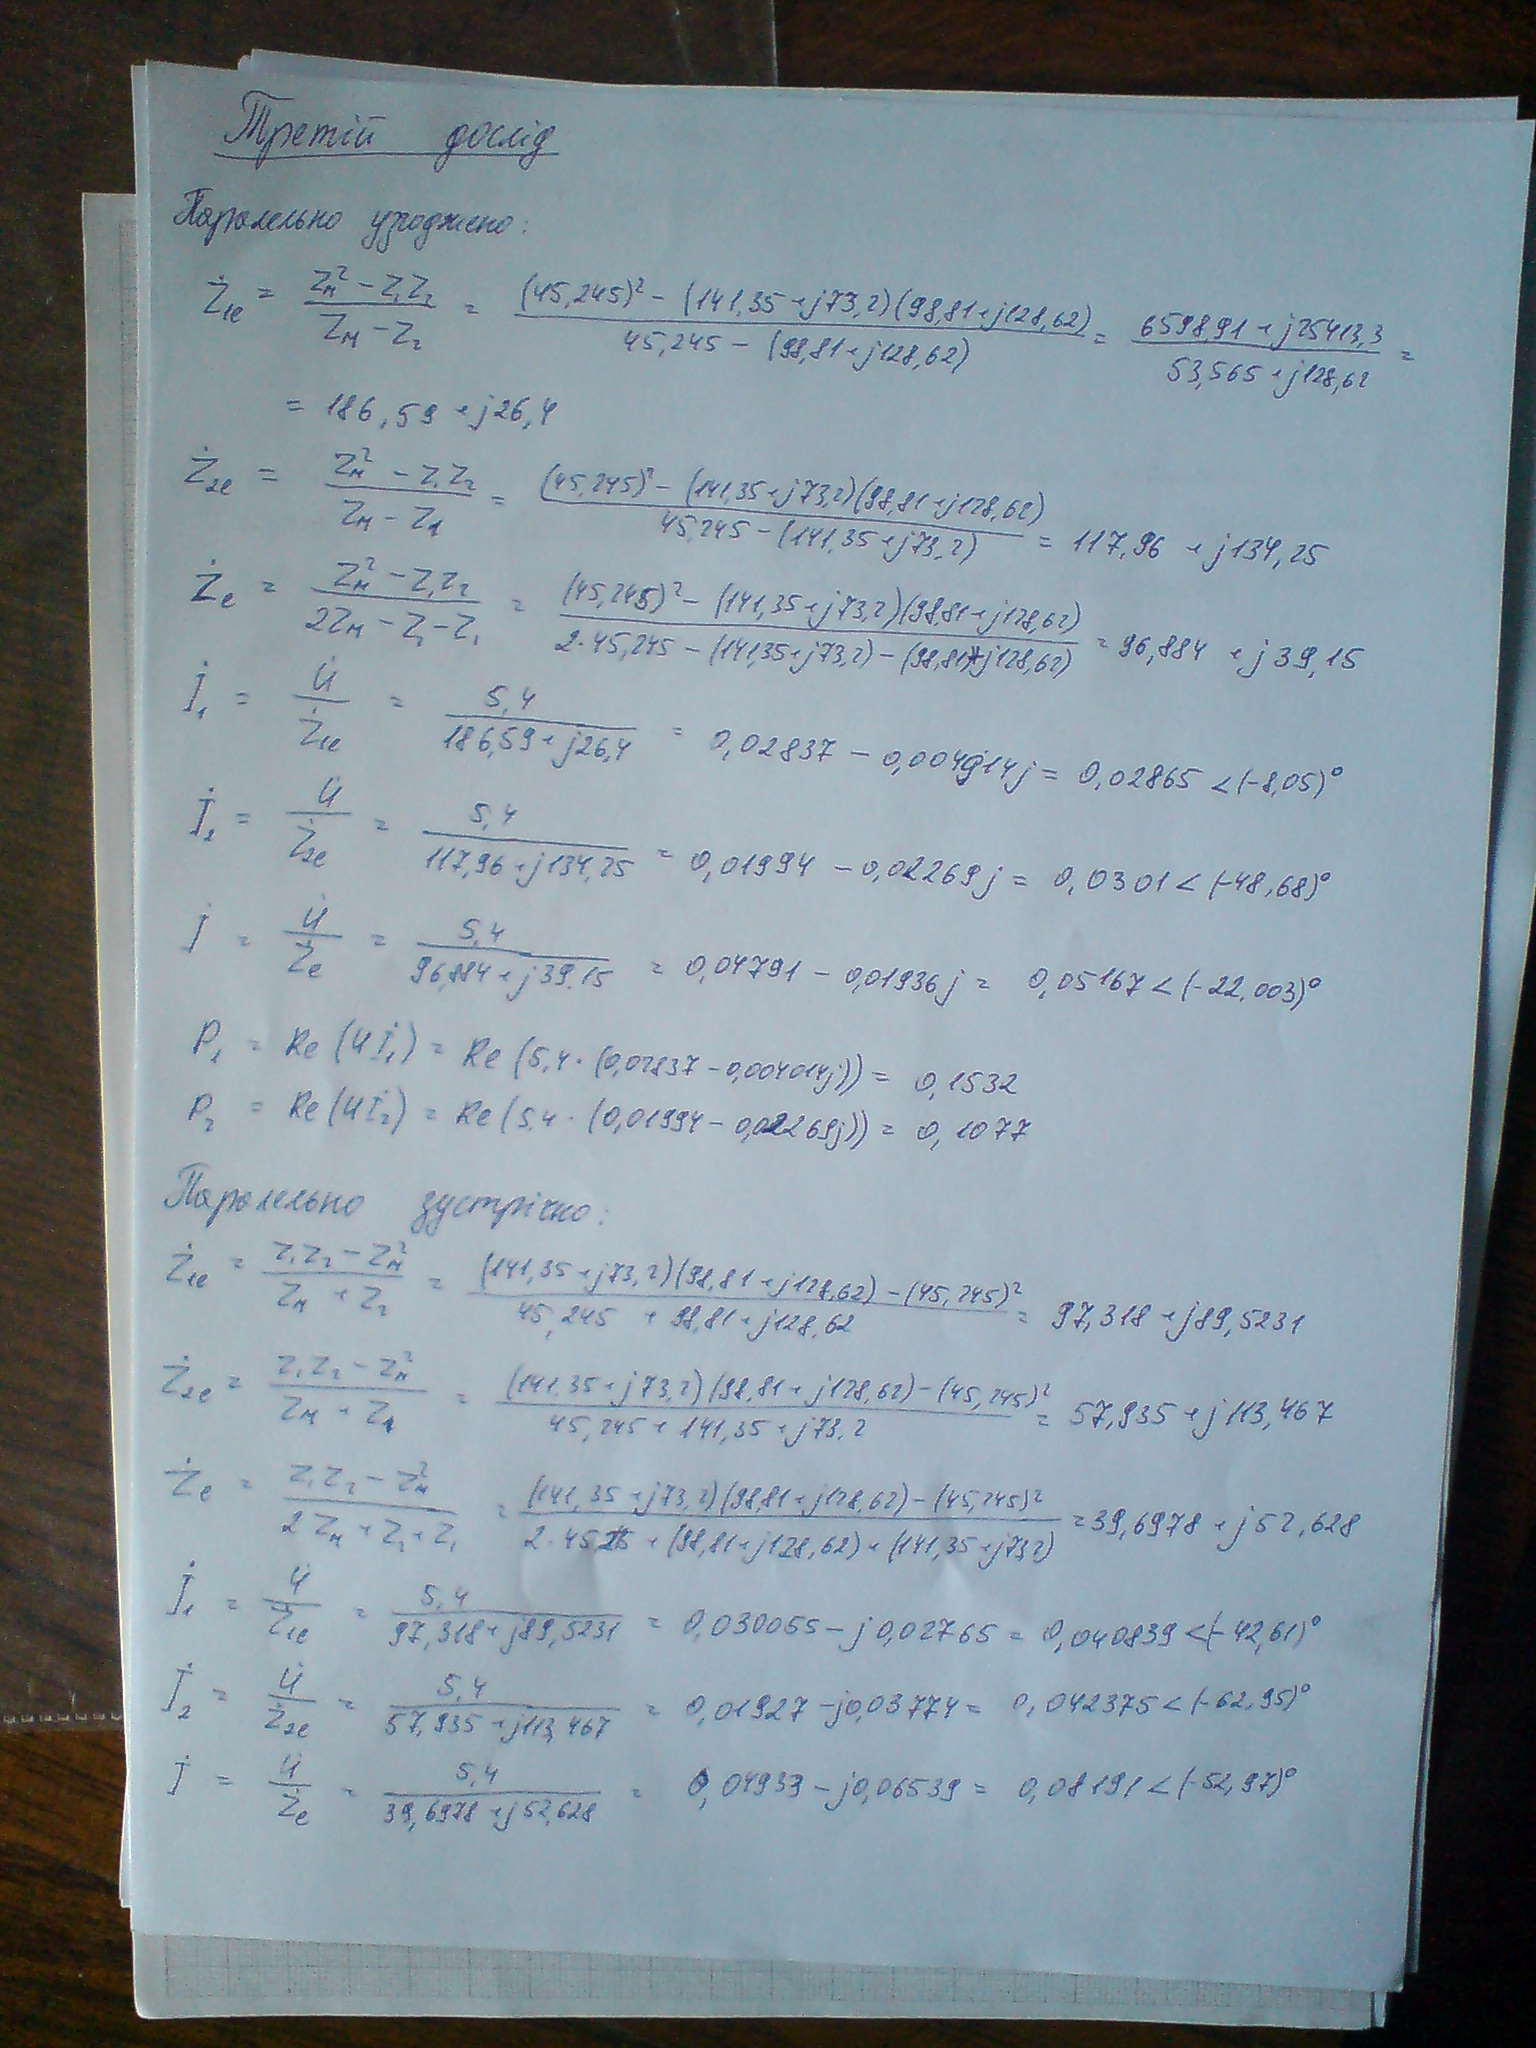 Третій дослід
Паралельно узгоджено:
Ż₁ₑ = (Zₘ² − Z₁Z₂)/(Zₘ − Z₂) = ((45,245)² − (141,35 + j73,2)(98,81 + j128,62))/(45,245 − (98,81 + j128,62)) = (6598,91 + j25413,3)/(53,565 + j128,62) =
= 186,59 + j26,4
Ż₂ₑ = (Zₘ² − Z₁Z₂)/(Zₘ − Z₁) = ((45,245)² − (141,35 + j73,2)(98,81 + j128,62))/(45,245 − (141,35 + j73,2)) = 117,96 + j134,25
Żₑ = (Zₘ² − Z₁Z₂)/(2Zₘ − Z₂ − Z₁) = ((45,245)² − (141,35 + j73,2)(98,81 + j128,62))/(2·45,245 − (141,35 + j73,2) − (98,81 + j128,62)) = 96,884 + j39,15
İ₁ = U̇/Ż₁ₑ = 5,4/(186,59 + j26,4) = 0,02837 − 0,004014j = 0,02865 < (−8,05)°
İ₂ = U̇/Ż₂ₑ = 5,4/(117,96 + j134,25) = 0,01994 − 0,02269j = 0,0301 < (−48,68)°
İ = U̇/Żₑ = 5,4/(96,884 + j39,15) = 0,04791 − 0,01936j = 0,05167 < (−22,003)°
P₁ = Re(U İ₁) = Re(5,4·(0,02837 − 0,004014j)) = 0,1532
P₂ = Re(U İ₂) = Re(5,4·(0,01994 − 0,02269j)) = 0,1077
Паралельно зустрічно:
Ż₁ₑ = (Z₁Z₂ − Zₘ²)/(Zₘ + Z₂) = ((141,35 + j73,2)(98,81 + j128,62) − (45,245)²)/(45,245 + 98,81 + j128,62) = 97,318 + j89,5231
Ż₂ₑ = (Z₁Z₂ − Zₘ²)/(Zₘ + Z₁) = ((141,35 + j73,2)(98,81 + j128,62) − (45,245)²)/(45,245 + 141,35 + j73,2) = 57,935 + j113,467
Żₑ = (Z₁Z₂ − Zₘ²)/(2Zₘ + Z₂ + Z₁) = ((141,35 + j73,2)(98,81 + j128,62) − (45,245)²)/(2· + (98,81 + j128,62) + (141,35 + j73,2)) = 39,6978 + j52,628
İ₁ = U̇/Ż₁ₑ = 5,4/(97,318 + j89,5231) = 0,030055 − j0,02765 = 0,040839 < (−42,61)°
İ₂ = U̇/Ż₂ₑ = 5,4/(57,935 + j113,467) = 0,01927 − j0,03774 = 0,042375 < (−62,95)°
İ = U̇/Żₑ = 5,4/(39,6978 + j52,628) = 0,04933 − j0,06539 = 0,08191 < (−52,97)°